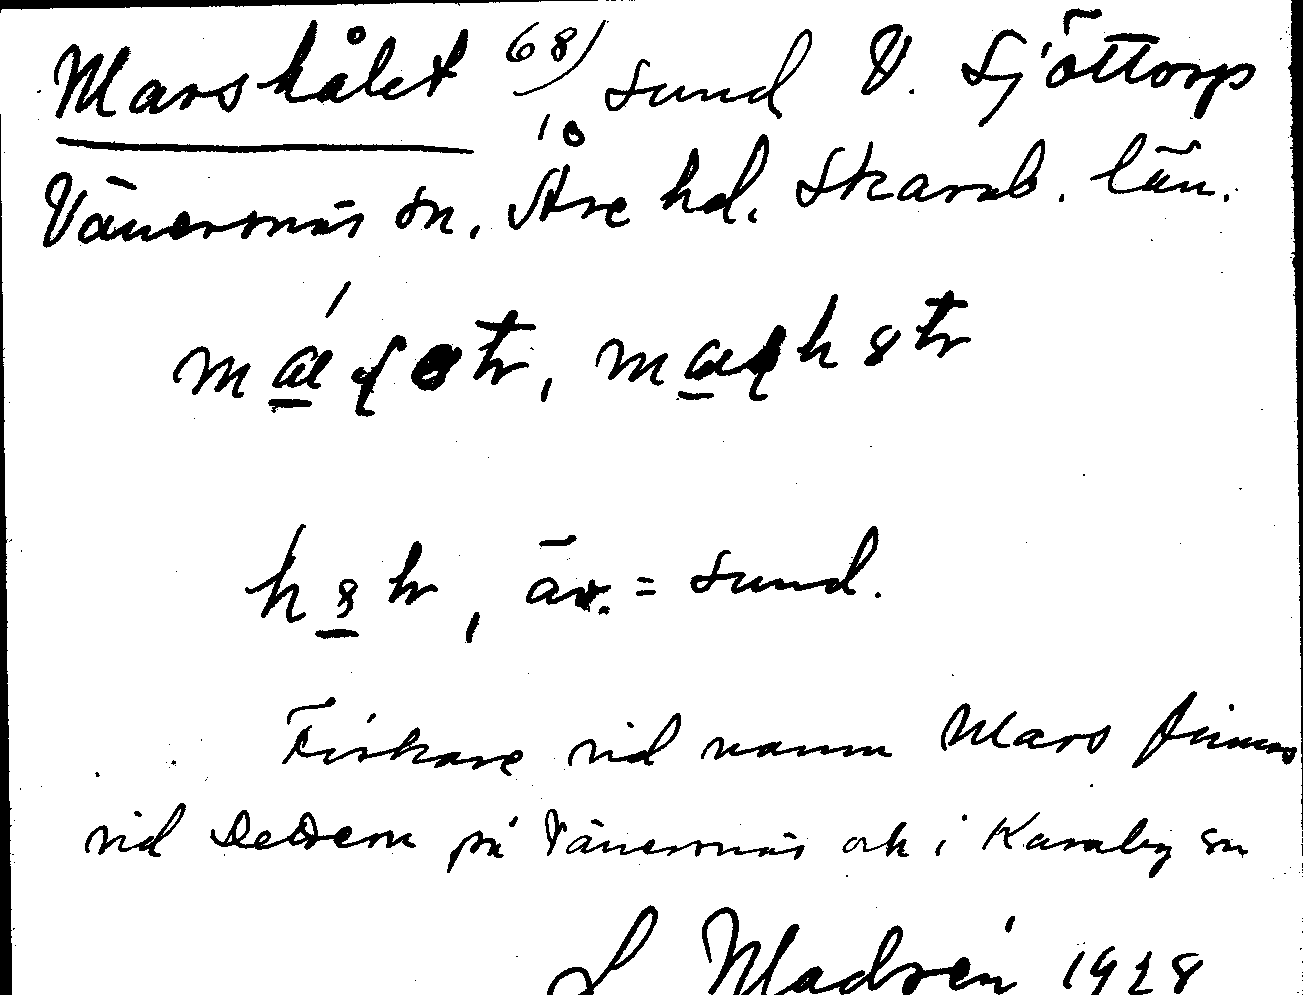 Marshålet 68) sund V. Sjöttorp
Vänersnäs sn, Åse hd. Skarab. län.
h8h, äv. = sund.
Fiskare vid namn Mars finnas
vid Dettern på Vänersnäs och i Karaby sn
L Modréni 1928